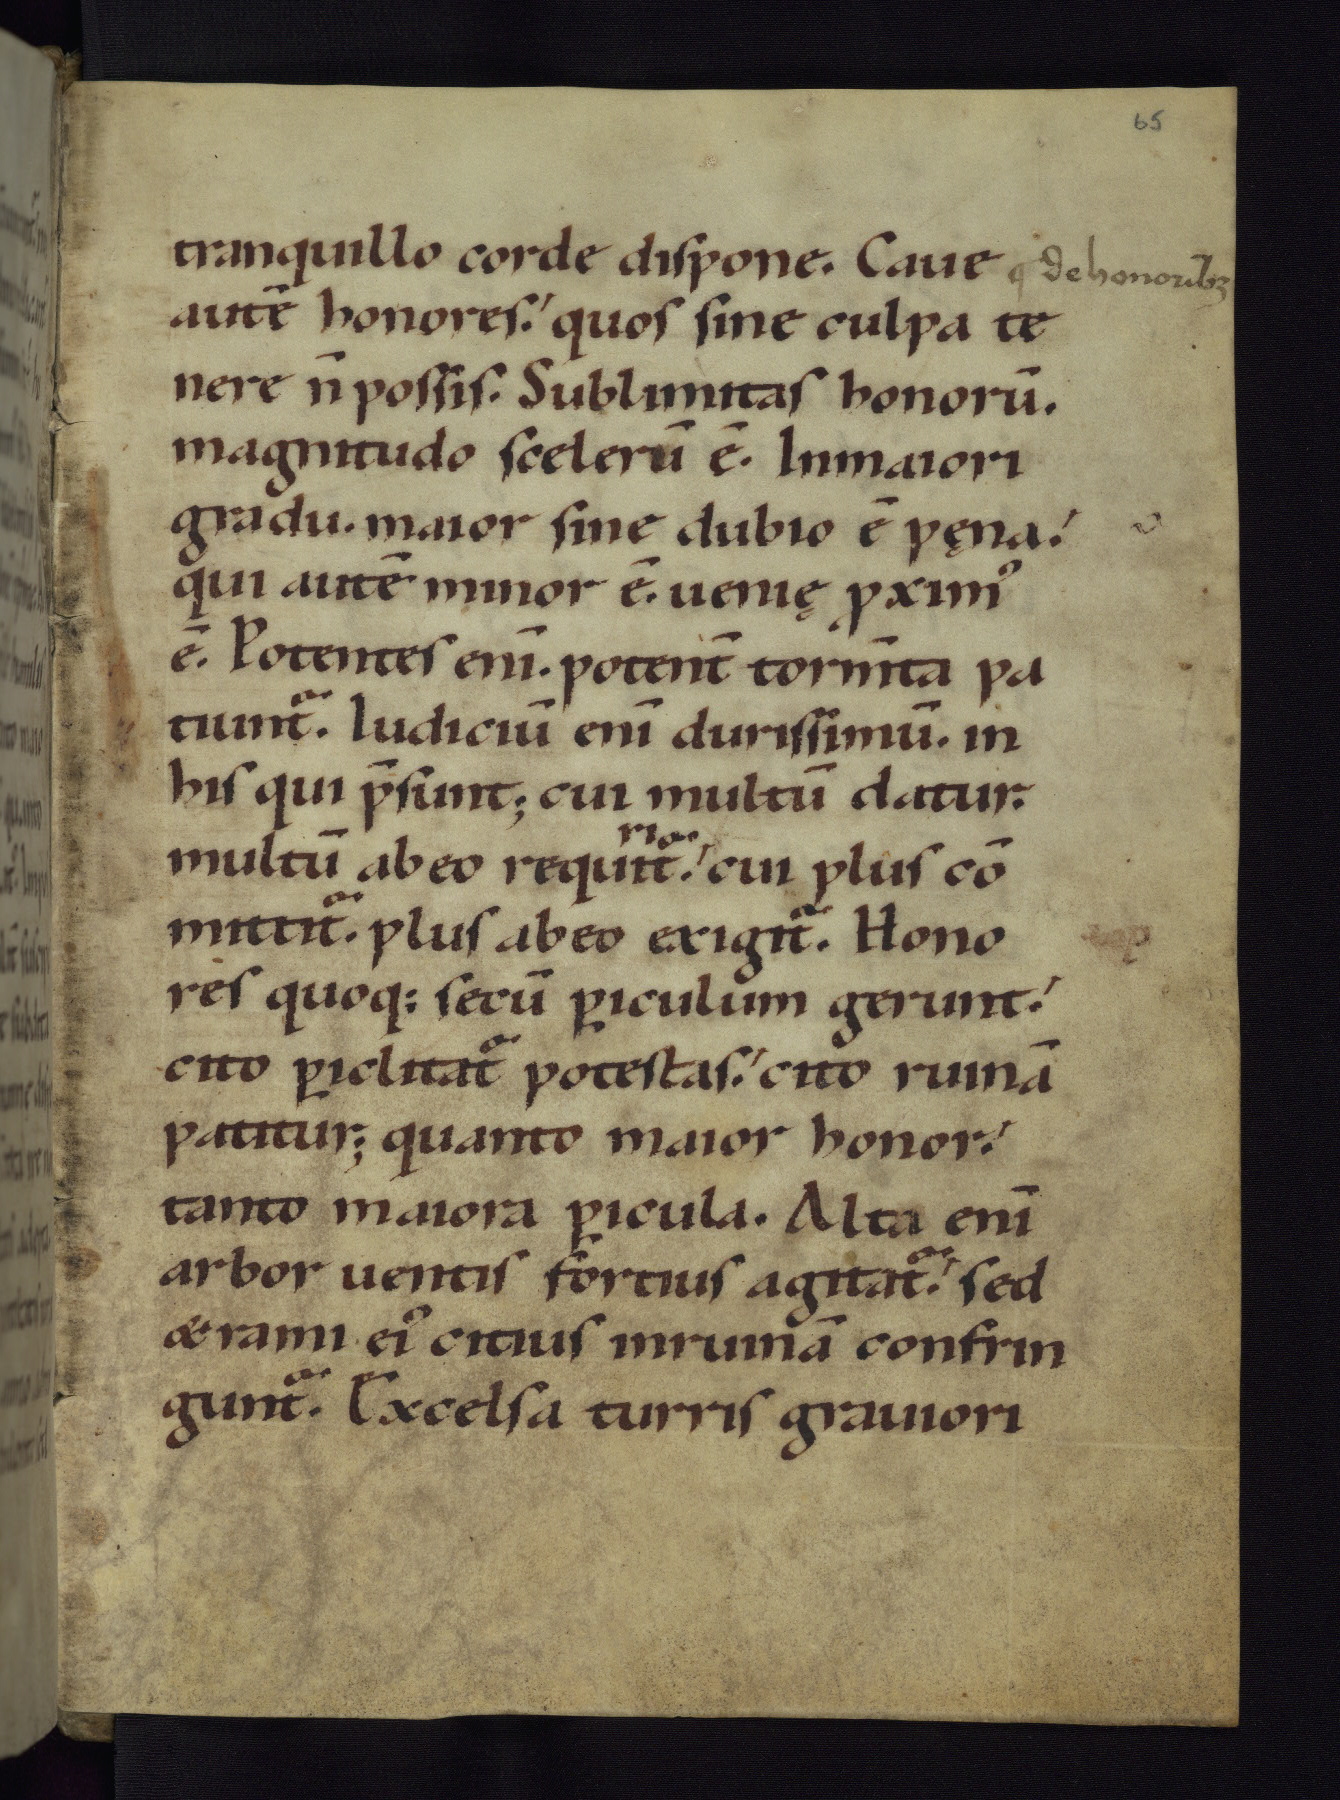 65
tranquillo corde dispone. Caue
q de honoribꝫ
autē honores. quos sine culpa te
nere n̄ possis. Sublimitas honorū.
magnitudo scelerū ē. Inmaiori
gradu. maior sine dubio ē pęna.
qui autē minor ē. uenię ꝓximꝰ
ē. Potentes enī. potent̄ torm̄ta pa
tiunt᷑. Iudiciū enī durissimū. in
his qui p̄sunt; cui multū datur.
multū abeo requirit᷑. cui plus cō
mittit᷑. plus abeo exigit᷑. Hono
res quoq: secū ꝑiculum gerunt.
cito ꝑiclitat᷑ potestas. cito ruinā
patitur; quanto maior honor.
tanto maiora ꝑicula. Alta enī
arbor uentis fortius agitat᷑. sed
& rami eiꝰ citius inruinā confrin
gunt᷑. Excelsa turris grauiori